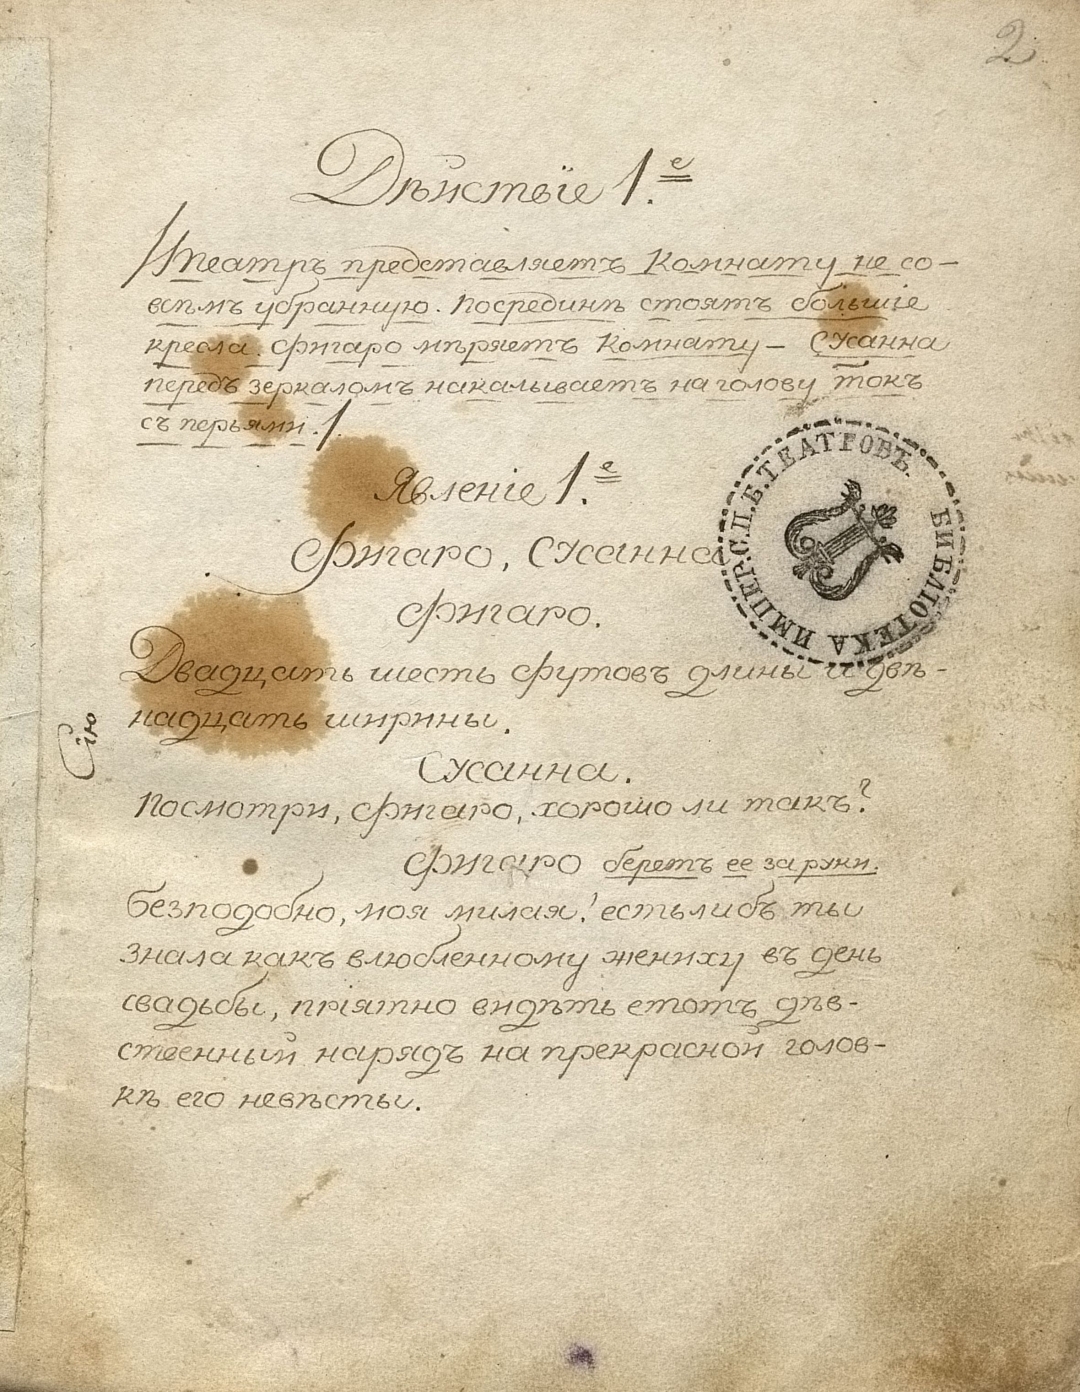 2
Дѣйствіе 1.е
/Театръ представляетъ Комнату не со-
всѣмъ убранную. Посрединѣ стоятъ большіе
кресла. Фигаро мѣряетъ Комнату – Сусанна
передъ зеркаломъ накалываетъ на голову токъ
съ перьями./
Явленіе 1.е
Фигаро, Сусанна
Фигаро.
Двадцать шесть футовъ длины и двѣ-
надцать ширины.
Сусанна.
Посмотри, Фигаро, хорошо ли такъ?
Фигаро беретъ ее за руки.
Безподобно, моя милая! естьлибъ ты
знала какъ влюбленному жениху въ день
свадьбы, пріятно видѣть етотъ дѣв-
ственный нарядъ на прекрасной голов-
кѣ его невѣсты.
Сію
БИБЛІОТЕКА ИМПЕР. С.П.Б. ТЕАТРОВЪ.